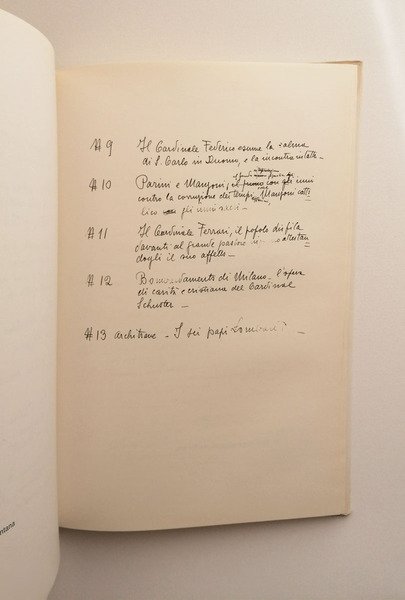 # 9 Il Cardinale Federico esume la salma
di S. Carlo in Duomo, e la incontra intatta –
# 10 Parini e Manzoni, il primo con gli inni
contro la corruzione dei tempi, Manzoni catto=
lico gli inni sacri –
# 11 Il Cardinale Ferrari, il popolo sfila
davanti al grande pastore attestan=
dogli il suo affetto –
# 12 Bombardamento di Milano – l'opera
di carità cristiana del Cardinal
Schuster –
# 13 architrave – I sei papi Lombardi –
ntana